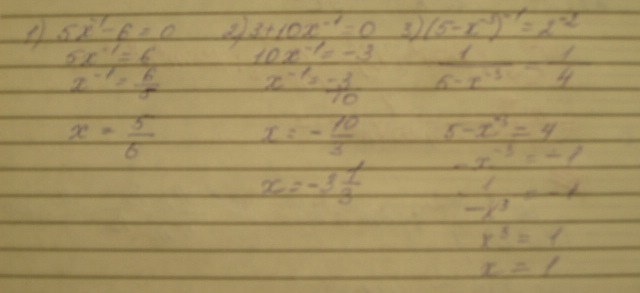 1) 5x⁻¹-6=0
5x⁻¹=6
x⁻¹=6/5
x=5/6
2) 3+10x⁻¹=0
10x⁻¹=-3
x⁻¹=-3/10
x=-10/3
x=-3 1/3
3) (5-x⁻³)⁻¹=2⁻²
1/5-x⁻³=1/4
5-x⁻³=4
-x⁻³=-1
1/-x³=-1
x³=1
x=1